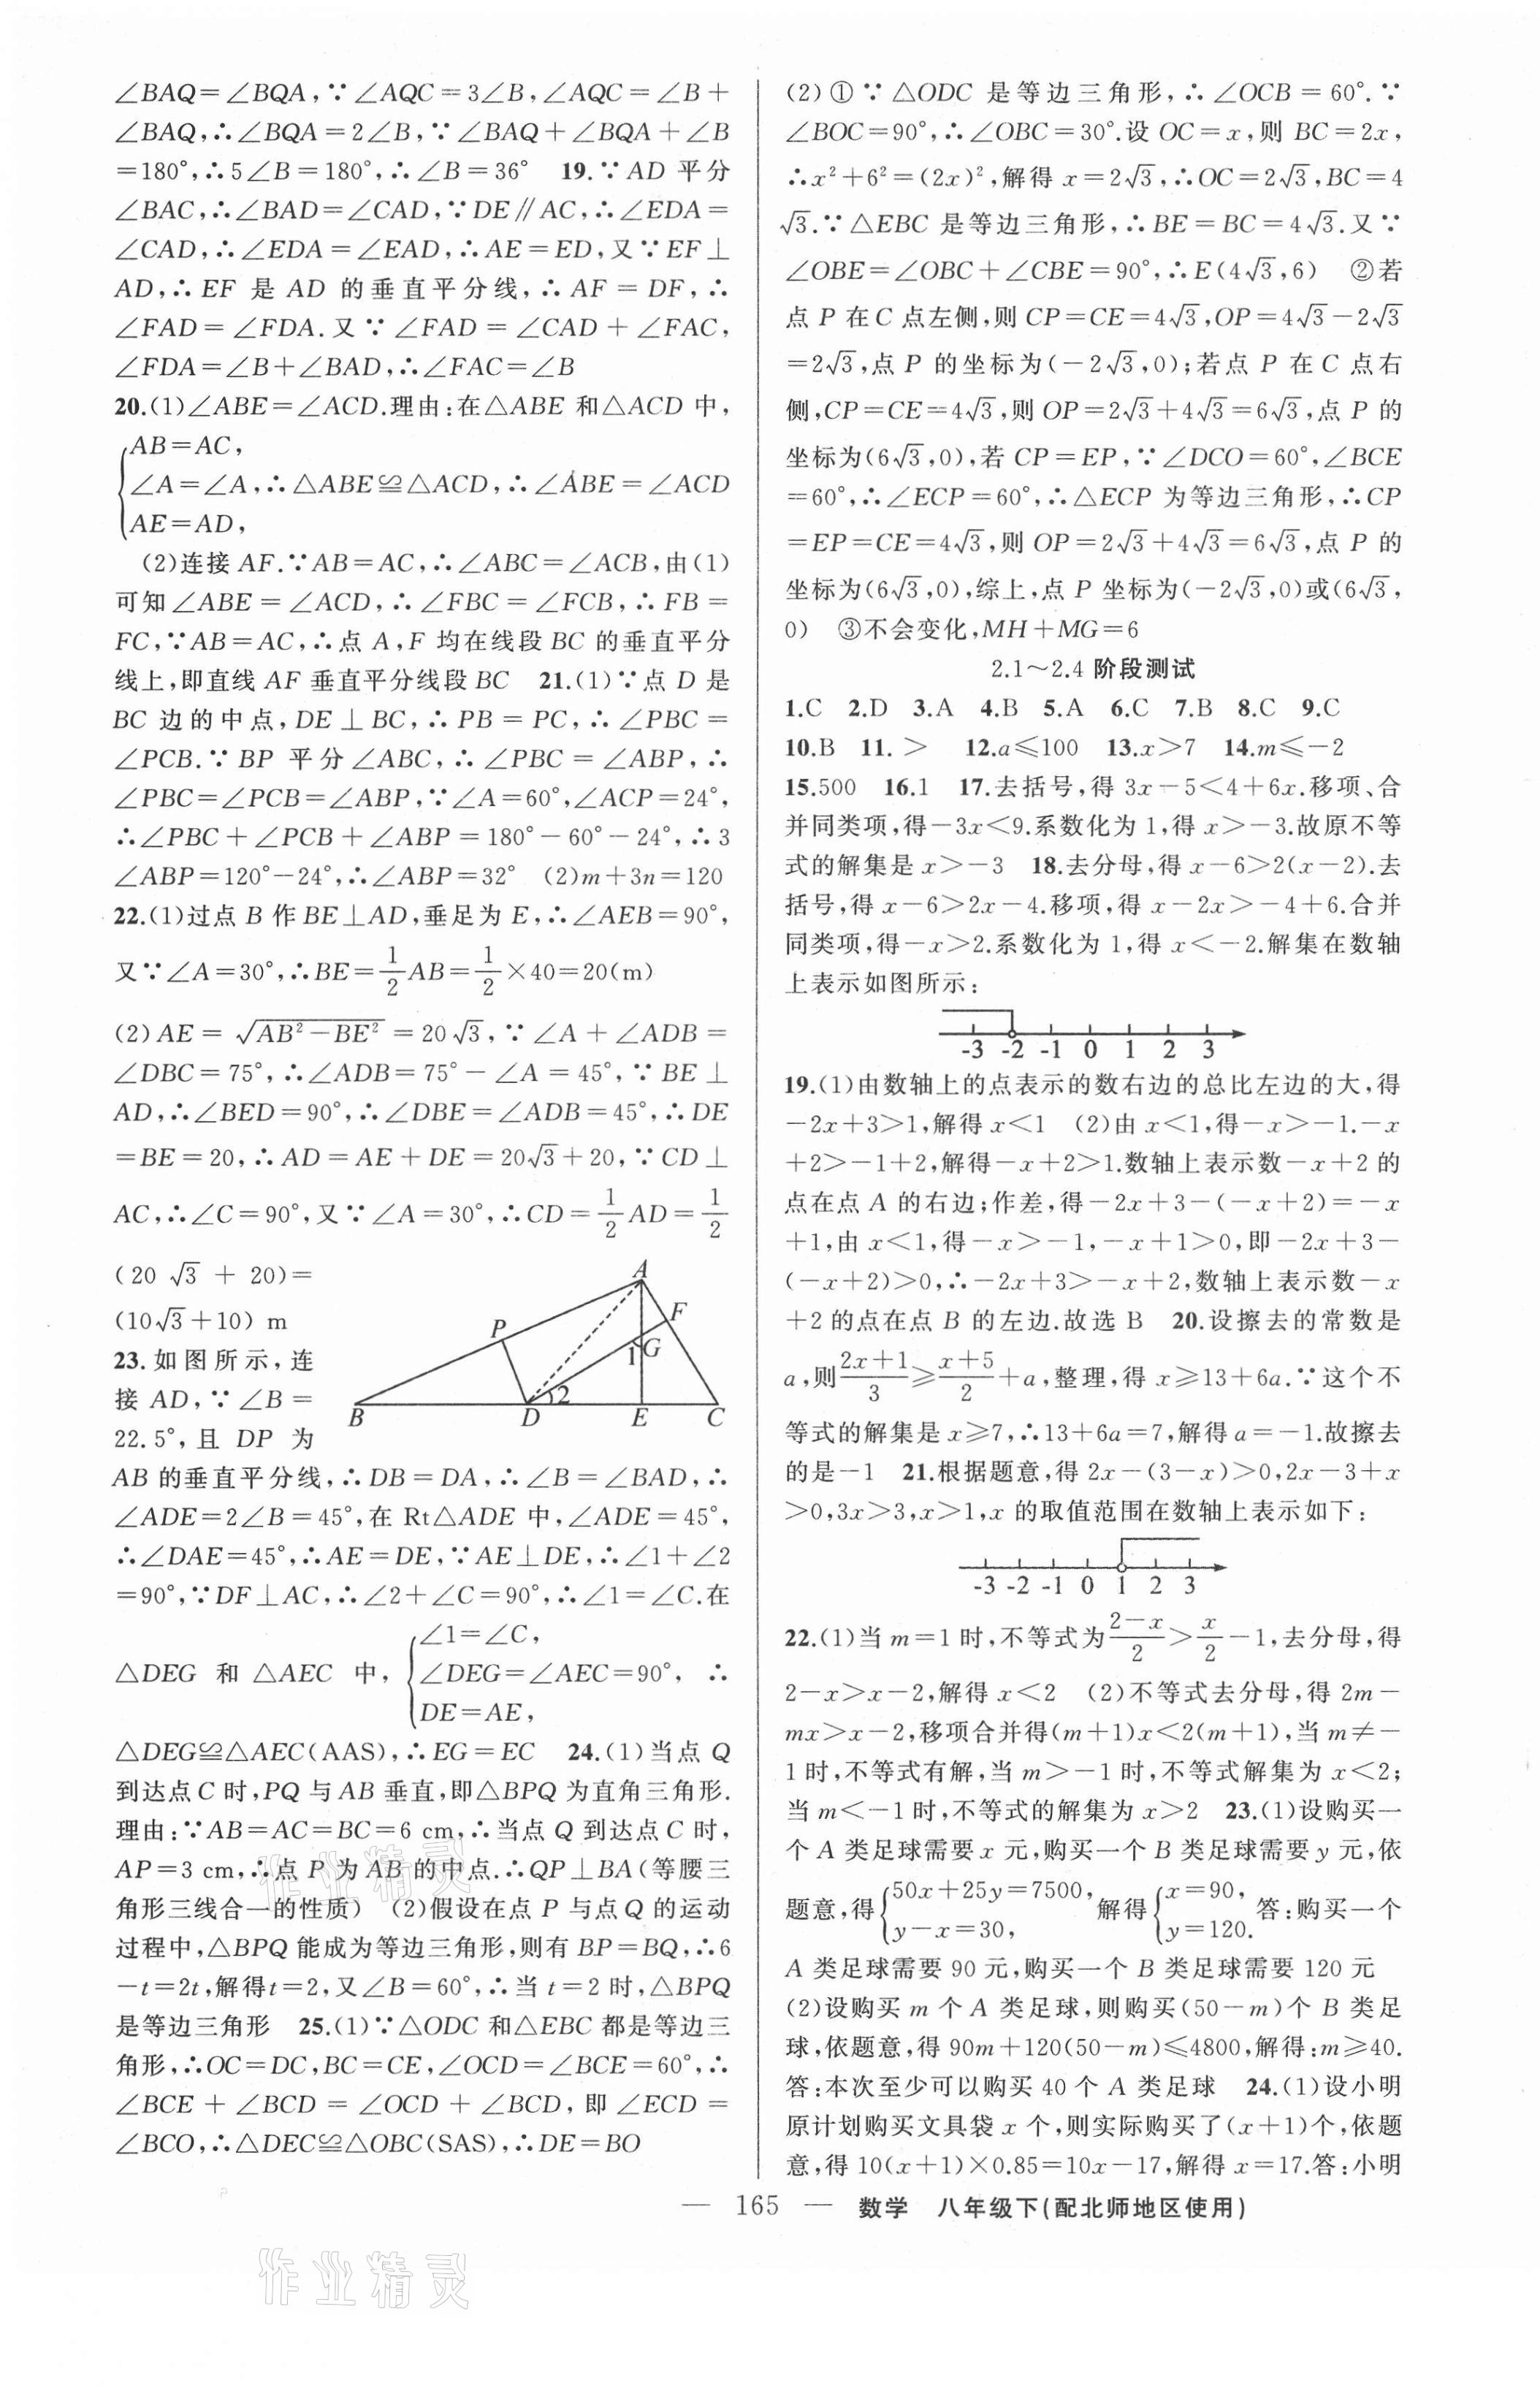 ∠BAQ=∠BQA,∵∠AQC=3∠B,∠AQC=∠B+
∠BAQ,∴∠BQA=2∠B,∵∠BAQ+∠BQA+∠B
=180°,∴5∠B=180°,∴∠B=36° 19.∵AD 平分
∠BAC,∴∠BAD=∠CAD,∵DE∥AC,∴∠EDA=
∠CAD,∴∠EDA=∠EAD,∴AE=ED,又∵EF⊥
AD,∴EF 是 AD 的垂直平分线,∴AF=DF,∴
∠FAD=∠FDA.又∵∠FAD=∠CAD+∠FAC,
∠FDA=∠B+∠BAD,∴∠FAC=∠B
20.(1)∠ABE=∠ACD.理由:在△ABE 和△ACD 中,
AB=AC,
∠A=∠A,∴△ABE≌△ACD,∴∠ABE=∠ACD
AE=AD,
(2)连接 AF.∵AB=AC,∴∠ABC=∠ACB,由(1)
可知∠ABE=∠ACD,∴∠FBC=∠FCB,∴FB=
FC,∵AB=AC,∴点 A,F 均在线段 BC 的垂直平分
线上,即直线 AF 垂直平分线段 BC 21.(1)∵点 D 是
BC 边的中点,DE⊥BC,∴PB=PC,∴∠PBC=
∠PCB.∵BP 平分∠ABC,∴∠PBC=∠ABP,∴
∠PBC=∠PCB=∠ABP,∵∠A=60°,∠ACP=24°,
∴∠PBC+∠PCB+∠ABP=180°-60°-24°,∴3
∠ABP=120°-24°,∴∠ABP=32° (2)m+3n=120
22.(1)过点 B 作 BE⊥AD,垂足为 E,∴∠AEB=90°,
又∵∠A=30°,∴BE=1/2AB=1/2×40=20(m)
(2)AE=√(AB²-BE²)=20√3,∵∠A+∠ADB=
∠DBC=75°,∴∠ADB=75°-∠A=45°,∵BE⊥
AD,∴∠BED=90°,∴∠DBE=∠ADB=45°,∴DE
=BE=20,∴AD=AE+DE=20√3+20,∵CD⊥
AC,∴∠C=90°,又∵∠A=30°,∴CD=1/2AD=1/2
(20√3+20)=
(10√3+10) m
23.如图所示,连
接 AD,∵∠B=
22.5°,且 DP 为
A
F
P
1
G
2
B
D
E
C
AB 的垂直平分线,∴DB=DA,∴∠B=∠BAD,∴
∠ADE=2∠B=45°,在 Rt△ADE 中,∠ADE=45°,
∴∠DAE=45°,∴AE=DE,∵AE⊥DE,∴∠1+∠2
=90°,∵DF⊥AC,∴∠2+∠C=90°,∴∠1=∠C.在
∠1=∠C,
△DEG 和 △AEC 中, ∠DEG=∠AEC=90°, ∴
DE=AE,
△DEG≌△AEC(AAS),∴EG=EC 24.(1)当点 Q
到达点 C 时,PQ 与 AB 垂直,即△BPQ 为直角三角形.
理由:∵AB=AC=BC=6 cm,∴当点 Q 到达点 C 时,
AP=3 cm,∴点 P 为 AB 的中点.∴QP⊥BA(等腰三
角形三线合一的性质) (2)假设在点 P 与点 Q 的运动
过程中,△BPQ 能成为等边三角形,则有 BP=BQ,∴6
-t=2t,解得t=2,又∠B=60°,∴当 t=2 时,△BPQ
是等边三角形 25.(1)∵△ODC 和△EBC 都是等边三
角形,∴OC=DC,BC=CE,∠OCD=∠BCE=60°,∴
∠BCE+∠BCD=∠OCD+∠BCD,即∠ECD=
∠BCO,∴△DEC≌△OBC(SAS),∴DE=BO
(2)①∵△ODC 是等边三角形,∴∠OCB=60°.∵
∠BOC=90°,∴∠OBC=30°.设 OC=x,则 BC=2x,
∴x²+6²=(2x)²,解得 x=2√3,∴OC=2√3,BC=4
√3.∵△EBC 是等边三角形,∴BE=BC=4√3.又∵
∠OBE=∠OBC+∠CBE=90°,∴E(4√3,6) ②若
点 P 在 C 点左侧,则 CP=CE=4√3,OP=4√3-2√3
=2√3,点 P 的坐标为(-2√3,0);若点 P 在 C 点右
侧,CP=CE=4√3,则 OP=2√3+4√3=6√3,点 P 的
坐标为(6√3,0),若 CP=EP,∵∠DCO=60°,∠BCE
=60°,∴∠ECP=60°,∴△ECP 为等边三角形,∴CP
=EP=CE=4√3,则 OP=2√3+4√3=6√3,点 P 的
坐标为(6√3,0),综上,点 P 坐标为(-2√3,0)或(6√3,
0) ③不会变化,MH+MG=6
2.1~2.4 阶段测试
1.C 2.D 3.A 4.B 5.A 6.C 7.B 8.C 9.C
10.B 11.> 12.a≤100 13.x>7 14.m≤-2
15.500 16.1 17.去括号,得 3x-5<4+6x.移项、合
并同类项,得-3x<9.系数化为 1,得 x>-3.故原不等
式的解集是 x>-3 18.去分母,得 x-6>2(x-2).去
括号,得 x-6>2x-4.移项,得 x-2x>-4+6.合并
同类项,得-x>2.系数化为 1,得 x<-2.解集在数轴
上表示如图所示:
-3 -2 -1 0 1 2 3
19.(1)由数轴上的点表示的数右边的总比左边的大,得
-2x+3>1,解得 x<1 (2)由 x<1,得-x>-1.-x
+2>-1+2,解得-x+2>1.数轴上表示数-x+2 的
点在点 A 的右边;作差,得-2x+3-(-x+2)=-x
+1,由 x<1,得-x>-1,-x+1>0,即-2x+3-
(-x+2)>0,∴-2x+3>-x+2,数轴上表示数-x
+2 的点在点 B 的左边.故选 B 20.设擦去的常数是
a,则(2x+1)/3≥(x+5)/2+a,整理,得 x≥13+6a.∵这个不
等式的解集是 x≥7,∴13+6a=7,解得 a=-1.故擦去
的是-1 21.根据题意,得 2x-(3-x)>0,2x-3+x
>0,3x>3,x>1,x 的取值范围在数轴上表示如下:
-3 -2 -1 0 1 2 3
22.(1)当 m=1 时,不等式为(2-x)/2>x/2-1,去分母,得
2-x>x-2,解得 x<2 (2)不等式去分母,得 2m-
mx>x-2,移项合并得(m+1)x<2(m+1),当 m≠-
1 时,不等式有解,当 m>-1 时,不等式解集为 x<2;
当 m<-1 时,不等式的解集为 x>2 23.(1)设购买一
个 A 类足球需要 x 元,购买一个 B 类足球需要 y 元,依
题意,得{50x+25y=7500, y-x=30, 解得{x=90, y=120. 答:购买一个
A 类足球需要 90 元,购买一个 B 类足球需要 120 元
(2)设购买 m 个 A 类足球,则购买(50-m)个 B 类足
球,依题意,得 90m+120(50-m)≤4800,解得:m≥40.
答:本次至少可以购买 40 个 A 类足球 24.(1)设小明
原计划购买文具袋 x 个,则实际购买了(x+1)个,依题
意,得 10(x+1)×0.85=10x-17,解得 x=17.答:小明
— 165 — 数学 八年级下(配北师地区使用)
作业精灵
作业精灵